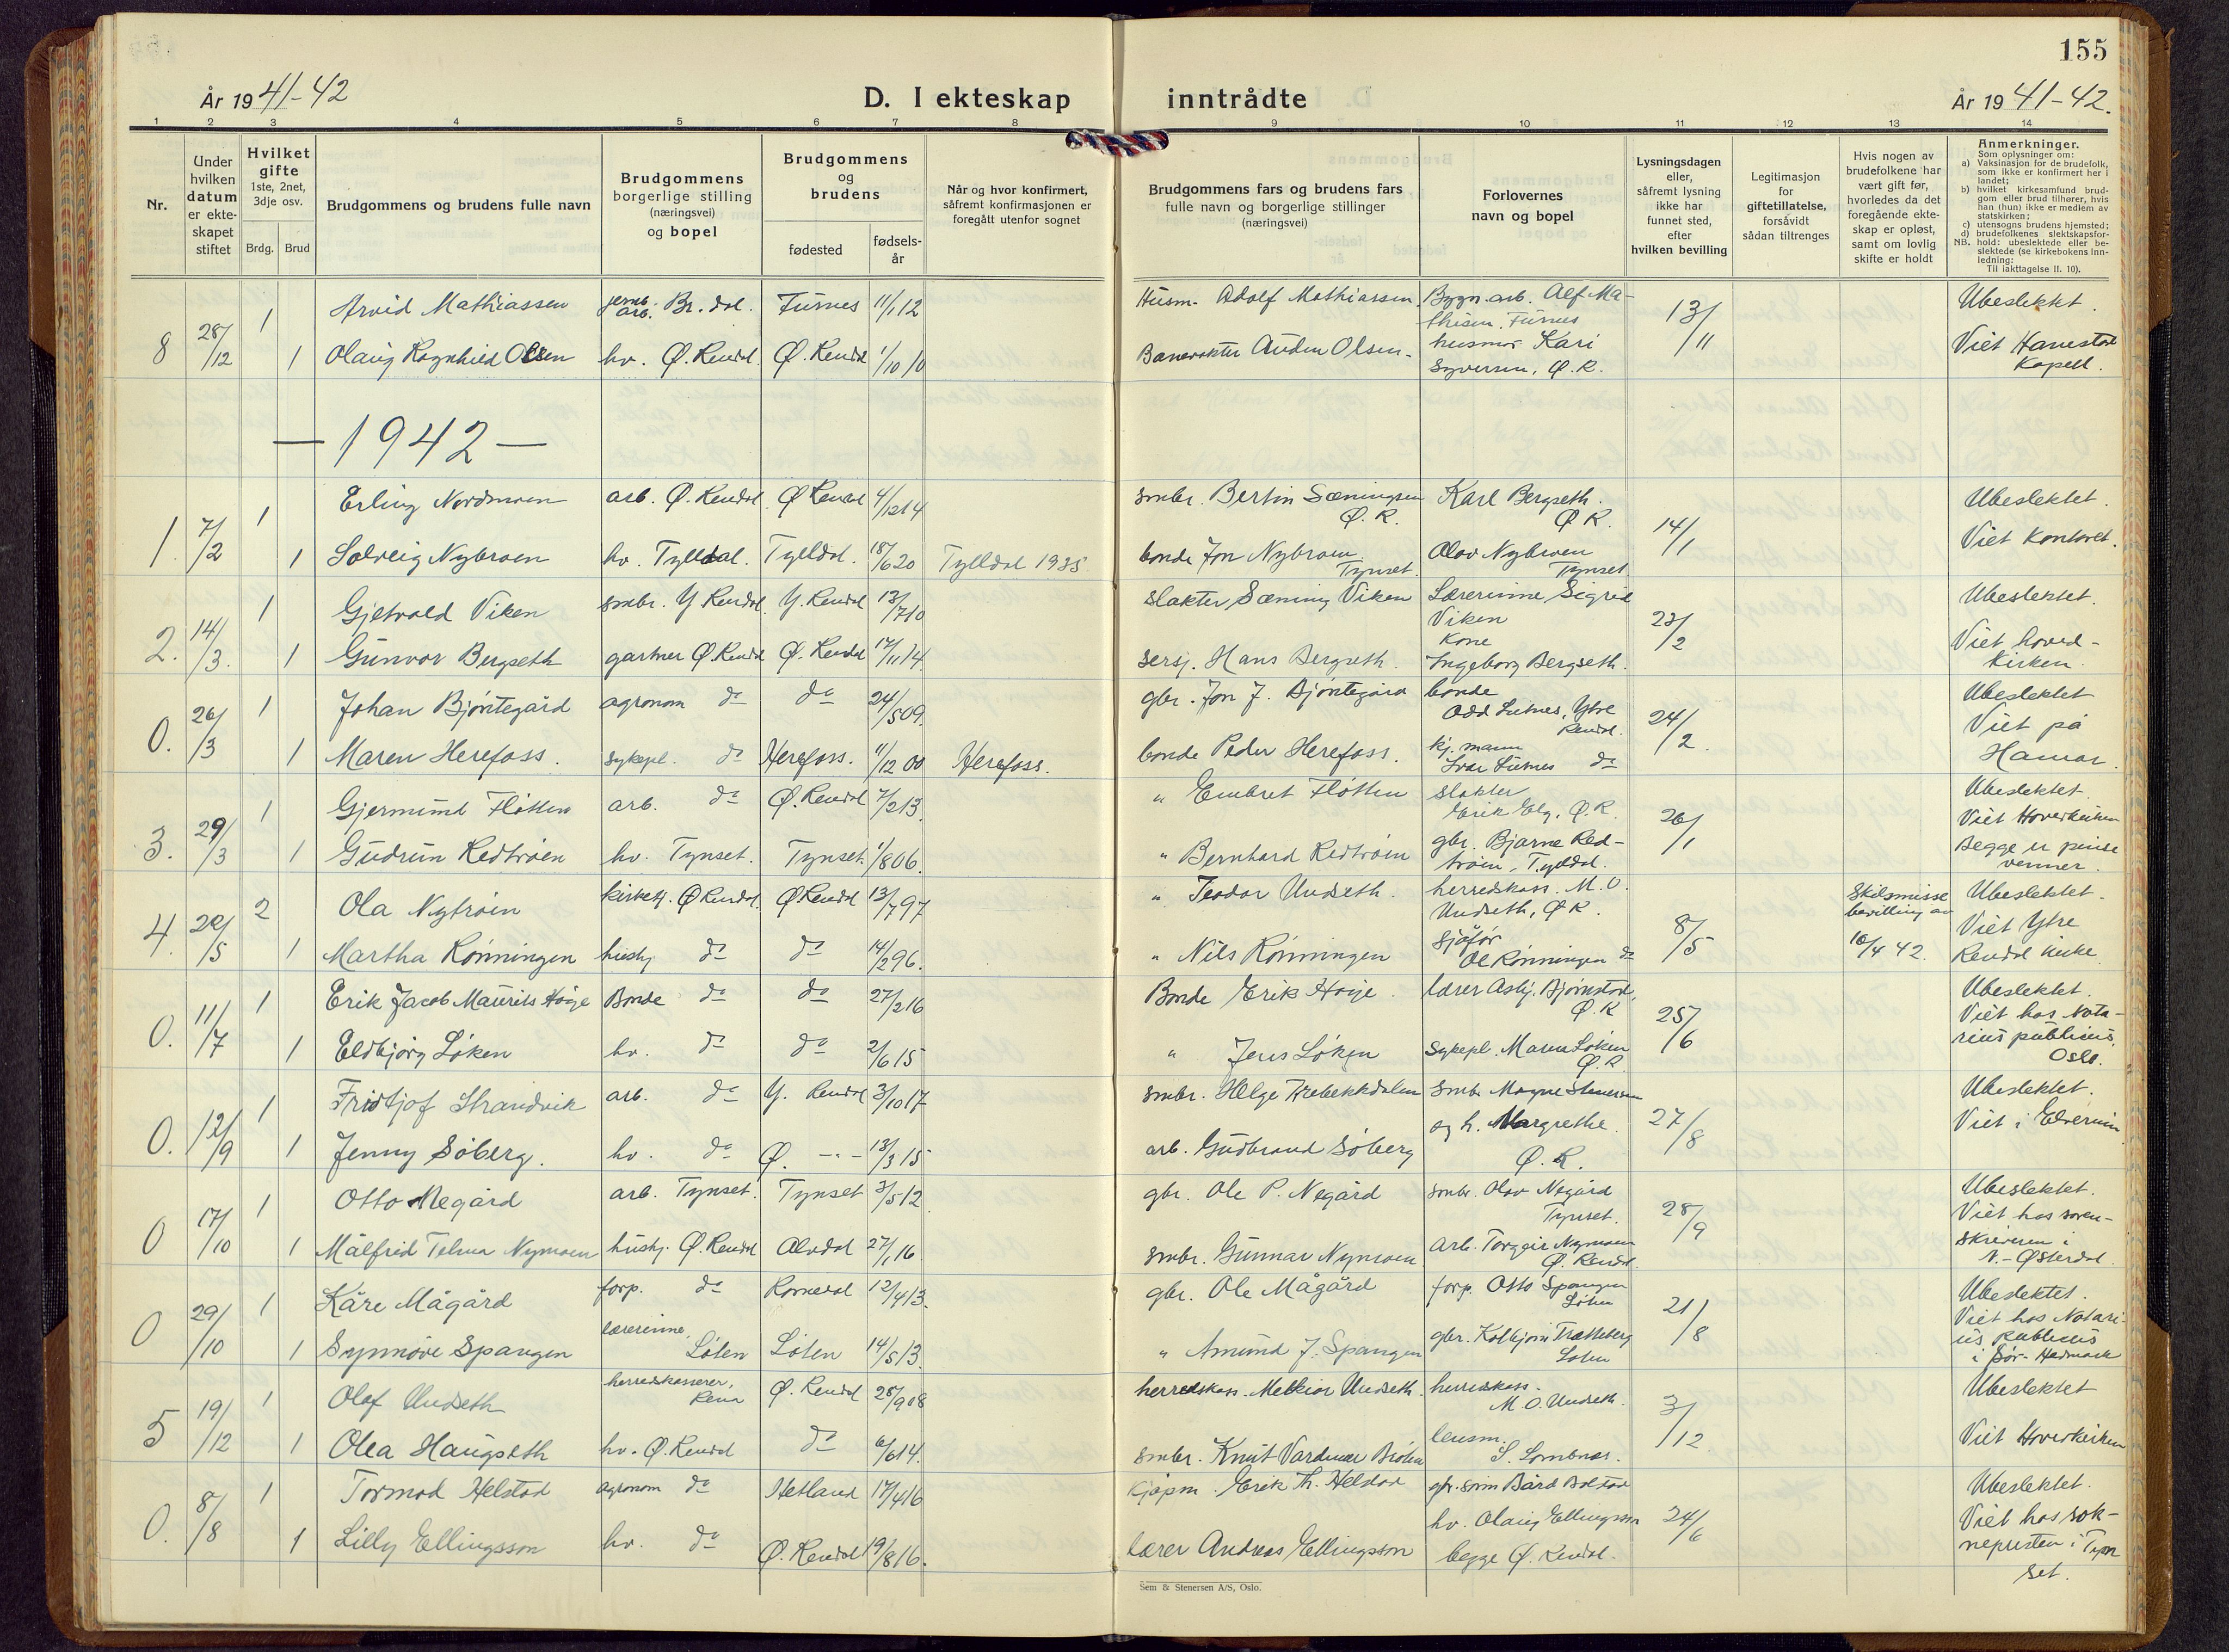 155
År 1941-42
D. I ekteskap inntrådte
År 1941-42.
1 2 3 4 5 6 7 8 9 10 11 12 13 14
Nr.
Under hvilken datum er ekteskapet stiftet
Hvilket gifte 1ste, 2net, 3dje osv.
Brdg. Brud
Brudgommens og brudens fulle navn
Brudgommens borgerlige stilling (næringsvei) og bopel
Brudgommens og brudens
fødested
fødselsår
Når og hvor konfirmert, såfremt konfirmasjonen er foregått utenfor sognet
Brudgommens fars og brudens fars fulle navn og borgerlige stillinger (næringsvei)
Forlovernes navn og bopel
Lysningsdagen eller, såfremt lysning ikke har funnet sted, efter hvilken bevilling
Legitimasjon for giftetillatelse, forsåvidt sådan tiltrenges
Hvis nogen av brudefolkene har vært gift før, hvorledes da det foregående ekteskap er opløst, samt om lovlig skifte er holdt
Anmerkninger.
Som oplysninger om:
a) Vaksinasjon for de brudefolk, som ikke er konfirmert her i landet;
b) hvilket kirkesamfund brudgom eller brud tilhører, hvis han (hun) ikke er medlem av statskirken;
c) utensogns brudens hjemsted;
d) brudefolkenes slektskapsforhold: ubeslektede eller beslektede (se kirkebokens innledning:
NB.
Til iakttagelse II. 10).
8 28/12 1 Arvid Mathiassen jernb. arb. Br. dal. Furnes 11/1 12 Husm. Adolf Mathiassen. Bygn. arb. Alf Mathisen, Furnes 13/11 Ubeslektet.
1 Olaug Ragnhild Olsen hv. Ø. Rendal. Ø. Rendal 1/10 10 Banevokter Auden Olsen. husmor Kari Syversen, Ø. R. Viet Hanestad Kapell.
— 1942 —
1. 7/2 1 Erling Nordmoen arb. Ø. Rendal. Ø Rendal 4/12 14 smbr. Bertin Sæningsen Ø. R. Karl Bergseth. Ø R. 14/1 Ubeslektet.
1 Solveig Nybroen hv. Tylldal. Tylldal. 18/6 20 Tylldal 1935 bonde Jon Nybroen. Tynset. Olav Nybroen Tynset Viet Kontoret.
2. 14/3. 1 Gjetvald Viken smbr. Y Rendal. Y. Rendal 13/7 10 slakter Sæming Viken Lærerinne Sigrid Viken 23/2 Ubeslektet.
1 Gunvor Bergseth gartner Ø. Rendal Ø. Rendal 17/11 14 sersj. Hans Bergseth. Kone Ingeborg Bergseth. Viet hovedkirken.
0. 26/3 1 Johan Bjøntegård agronom do do 24/5 09. gbr. Jon J. Bjøntegård bonde Odd Lutnes, Ytre Rendal. 24/2. Ubeslektet
1 Maren Herefoss. sykepl. do Herefoss. 11/12 00 Herefoss. bonde Peder Herefoss. kj. mann Ivar Lutnes do Viet på Hamar.
3. 29/3 1 Gjermund Fløtten arb. do Ø. Rendal 7/2 13. " Embret Fløtten slakter Erik Elg, Ø. R. 26/1 Ubeslektet.
1 Gudrun Redtrøen hv. Tynset. Tynset. 1/8 06. " Bernhard Redtrøen gbr. Bjarne Redtrøen, Tylldal. Viet Hovedkirken Begge er pinsevenner.
4. 20/5 2 Ola Nytrøen kirketj. Ø Rendal. Ø Rendal 13/7 97 " Teodor Undseth. herredskass. M. O. Undseth, Ø R. 8/5 Skilsmisse bevilling av 16/4 42. Ubeslektet.
1 Martha Rønningen hushj do do 14/2 96. " Nils Rønningen sjåfør Ole Rønningen do Viet Ytre Rendal kirke
0. 11/7 1 Erik Jacob Maurits Høye Bonde do do 27/2 16 Bonde Erik Høye. lærer Asbj. Bjørnstad, Ø. R 25/6 Ubeslektet.
1 Eldbjørg Løken hv. do do 2/6 15 " Jens Løken Sykepl. Maren Løken Ø. R. Viet hos Notarius publicus, Oslo.
0. 12/9 1 Fridtjof Strandvik arb. do Y. Rendal 3/10 17 smbr. Helge Trebekkdalen smbr. Magne Stenersen 27/8 Ubeslektet.
1 Jenny Søberg. hv. do Ø. -"- 13/3 15 arb. Gudbrand Søberg og h. Margrethe. Ø. R. Viet i Elverum
0 17/10 1 Otto Negård arb. Tynset. Tynset 3/5 12 gbr. Ole P. Negård smbr. Olav Negård Tynset. 28/9 Ubeslektet.
1 Målfrid Telma Nymoen hushj. Ø. Rendal Alvdal 27/1 16 smbr. Gunnar Nymoen Arb. Torgeir Nymoen Ø. Rendal. Viet hos sorenskriveren i N.-Østerdal
0 29/10 1 Kåre Mågård forp. do Romedal 12/4 13. gbr. Ole Mågård forp. Otto Spangen Løten 21/8 Ubeslektet.
1 Synnøve Spangen lærerinne, Løten Løten 14/5 13. " Amund J. Spangen gbr. Kolbjørn Trætteberg Løten Viet hos Notarius Publicus i Sør-Hedmark
5 19/12 1 Olaf Undseth herredskasserer, Rena Ø. Rendal 28/9 08 herredskass. Melkior Undseth. herredskass. M. O. Undseth. 3/12 Ubeslektet
1 Olea Haugseth hv. Ø. Rendal do 6/6 14. smbr. Knut Vardmoe Brøten lensm. S. Lombnæs. Viet Hovedkirken
0. 8/8 1 Tormod Helstad agronom do Hetland 17/4 16 Kjøpm. Erik Th. Helstad gbr. sønn Bård Bolstad 24/6 Ubeslektet.
1 Lilly Ellingsson hv. do Ø. Rendal 19/8 16. lærer Andreas Ellingsson hv. Olaug Ellingsson begge Ø. Rendal. Viet hos sokneprsten i Tynset.
Sem & Stenersen A/S, Oslo.